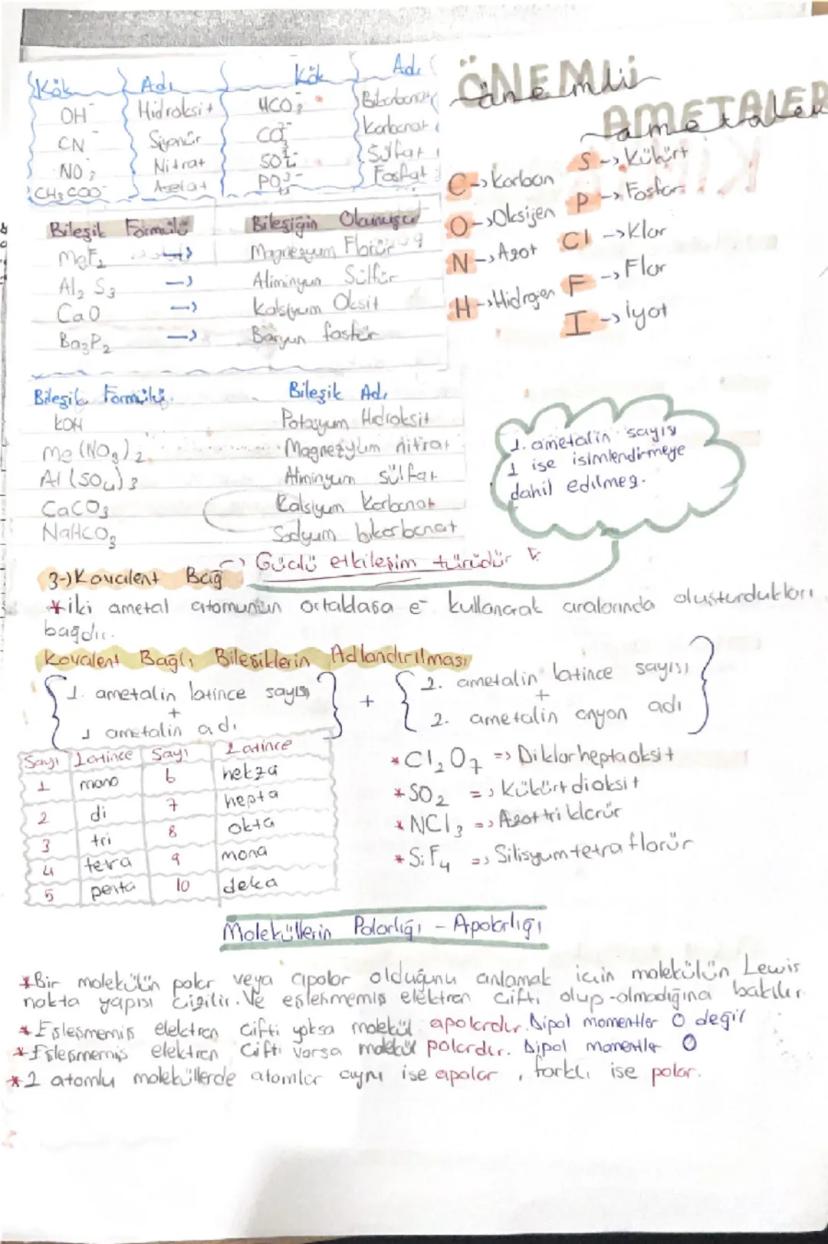 Kök Adı Kök Adı
OH⁻ Hidroksit HCO₃⁻ Bikarbonat
CN⁻ Siyanür CO₃²⁻ Karbonat
NO₃⁻ Nitrat SO₄²⁻ Sülfat
CH₃COO⁻ Asetat PO₄³⁻ Fosfat
ÖNEMLİ
önemli
AMETALLER
ametaller
C → Karbon
O → Oksijen
N → Azot
H → Hidrojen
S → Kükürt
P → Fosfor
Cl → Klor
F → Flor
I → İyot
Bileşik Formülü Bileşiğin Okunuşu
MgF₂ → Magnezyum Florür
Al₂S₃ → Aliminyum Sülfür
CaO → Kalsiyum Oksit
Ba₃P₂ → Baryum fosfür
Bileşik Formülü. Bileşik Adı
KOH Potasyum Hidroksit
Me(NO₃)₂ Magnezyum nitrat
Al(SO₄)₃ Aliminyum sülfat
CaCO₃ Kalsiyum Karbonat
NaHCO₃ Sodyum bikarbonat
1. ametalin sayısı
1 ise isimlendirmeye
dahil edilmez.
3-) Kovalent Bağ → Güçlü etkileşim türüdür
*iki ametal atomunun ortaklaşa e⁻ kullanarak aralarında oluşturdukları
bağdır.
Kovalent Bağlı Bileşiklerin Adlandırılması
1. ametalin latince sayısı
+
1 ametalin adı
+
2. ametalin latince sayısı
+
2. ametalin anyon adı
Sayı Latince Sayı Latince
1 mono 6 hekza
2 di 7 hepta
3 tri 8 okta
4 tetra 9 mona
5 penta 10 deka
*Cl₂O₇ => Diklorheptaoksit
*SO₂ => Kükürtdioksit
*NCl₃ => Azottriklorür
*SiF₄ => Silisyumtetraflorür
Moleküllerin Polarlığı - Apolarlığı
*Bir molekülün polar veya apolar olduğunu anlamak için molekülün Lewis
nokta yapısı çizilir. Ve eşleşmemiş elektron çifti olup-olmadığına bakılır
*Eşleşmemiş elektron çifti yoksa molekül apolardır. Dipol momentler 0 değil
*Eşleşmemiş elektron çifti varsa molekül polardır. Dipol momentler 0
*2 atomlu moleküllerde atomlar aynı ise apolar, farklı ise polar.